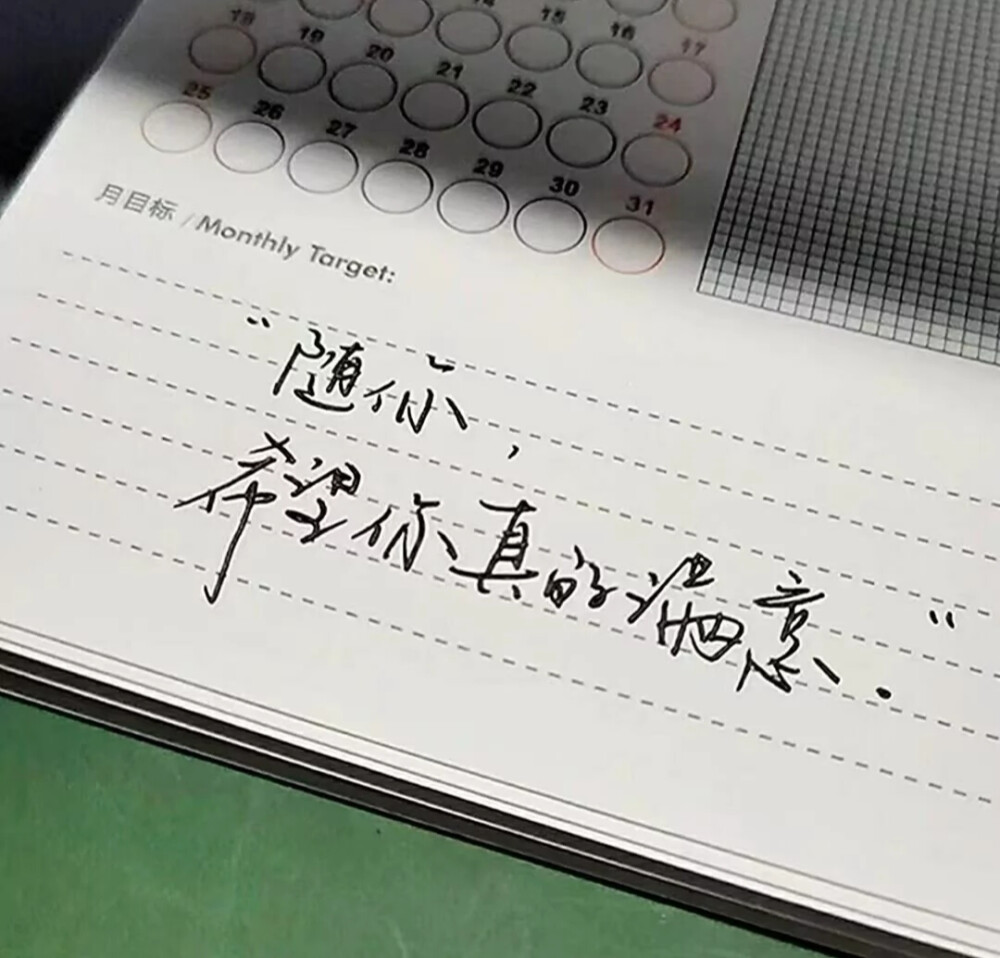 14 15 16 17
18 19 20 21 22 23 24
25 26 27 28 29 30 31
月目标 / Monthly Target:
“随你,
希望你真的满意.”